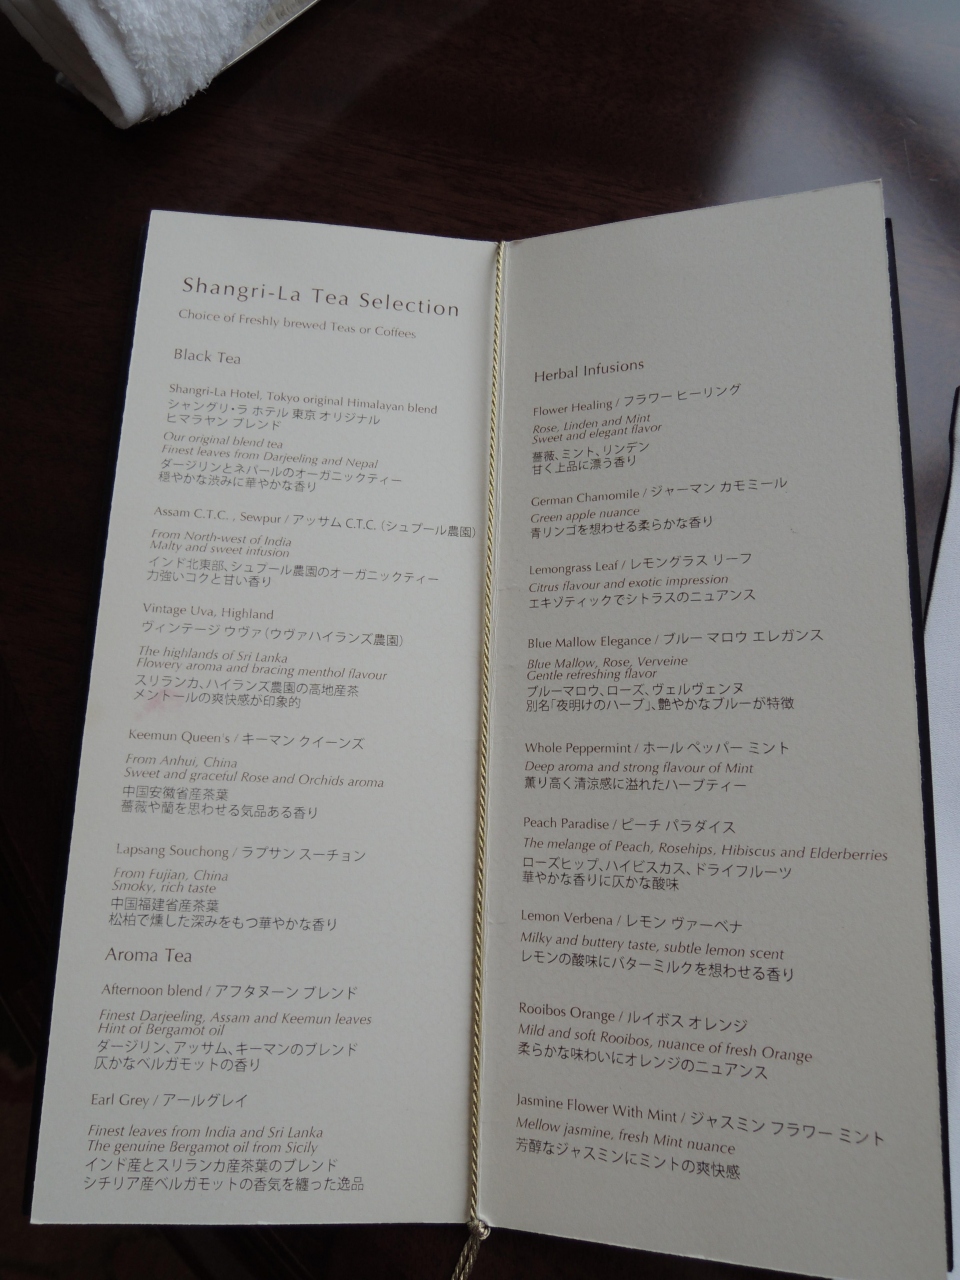 Shangri-La Tea Selection
Choice of Freshly brewed Teas or Coffees
Black Tea
Shangri-La Hotel, Tokyo original Himalayan blend
シャングリ・ラ ホテル 東京 オリジナル
ヒマラヤン ブレンド
Our original blend tea
Finest leaves from Darjeeling and Nepal
ダージリンとネパールのオーガニックティー
穏やかな渋みに華やかな香り
Assam C.T.C. , Sewpur / アッサム C.T.C.（シュプール農園）
From North-west of India
Malty and sweet infusion
インド北東部、シュプール農園のオーガニックティー
力強いコクと甘い香り
Vintage Uva, Highland
ヴィンテージ ウヴァ（ウヴァハイランズ農園）
The highlands of Sri Lanka
Flowery aroma and bracing menthol flavour
スリランカ、ハイランズ農園の高地産茶
メントールの爽快感が印象的
Keemun Queen's / キーマン クイーンズ
From Anhui, China
Sweet and graceful Rose and Orchids aroma
中国安徽省産茶葉
薔薇や蘭を思わせる気品ある香り
Lapsang Souchong / ラプサン スーチョン
From Fujian, China
Smoky, rich taste
中国福建省産茶葉
松柏で燻した深みをもつ華やかな香り
Aroma Tea
Afternoon blend / アフタヌーン ブレンド
Finest Darjeeling, Assam and Keemun leaves
Hint of Bergamot oil
ダージリン、アッサム、キーマンのブレンド
仄かなベルガモットの香り
Earl Grey / アールグレイ
Finest leaves from India and Sri Lanka
The genuine Bergamot oil from Sicily
インド産とスリランカ産茶葉のブレンド
シチリア産ベルガモットの香気を纏った逸品
Herbal Infusions
Flower Healing / フラワー ヒーリング
Rose, Linden and Mint
Sweet and elegant flavor
薔薇、ミント、リンデン
甘く上品に漂う香り
German Chamomile / ジャーマン カモミール
Green apple nuance
青リンゴを想わせる柔らかな香り
Lemongrass Leaf / レモングラス リーフ
Citrus flavour and exotic impression
エキゾティックでシトラスのニュアンス
Blue Mallow Elegance / ブルー マロウ エレガンス
Blue Mallow, Rose, Verveine
Gentle refreshing flavor
ブルーマロウ、ローズ、ヴェルヴェンヌ
別名「夜明けのハーブ」、艶やかなブルーが特徴
Whole Peppermint / ホール ペッパー ミント
Deep aroma and strong flavour of Mint
薫り高く清涼感に溢れたハーブティー
Peach Paradise / ピーチ パラダイス
The melange of Peach, Rosehips, Hibiscus and Elderberries
ローズヒップ、ハイビスカス、ドライフルーツ
華やかな香りに仄かな酸味
Lemon Verbena / レモン ヴァーベナ
Milky and buttery taste, subtle lemon scent
レモンの酸味にバターミルクを想わせる香り
Rooibos Orange / ルイボス オレンジ
Mild and soft Rooibos, nuance of fresh Orange
柔らかな味わいにオレンジのニュアンス
Jasmine Flower With Mint / ジャスミン フラワー ミント
Mellow jasmine, fresh Mint nuance
芳醇なジャスミンにミントの爽快感